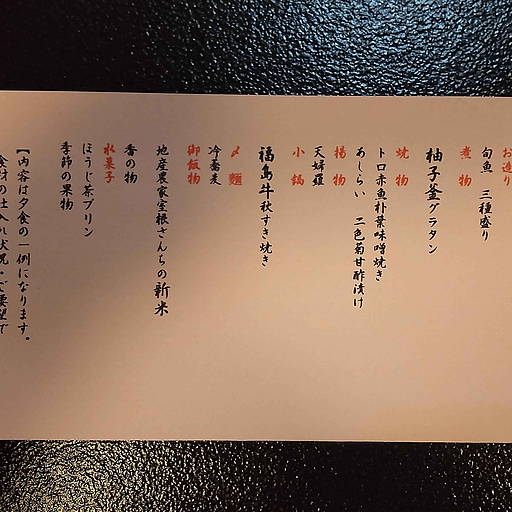 お造り
旬魚 三種盛り
煮物
柚子釜グラタン
焼物
トロ赤魚朴葉味噌焼き
あしらい 二色菊甘酢漬け
揚物
天婦羅
小鍋
福島牛秋すき焼き
〆麺
冷蕎麦
御飯物
地産農家室根さんちの新米
香の物
水菓子
ほうじ茶プリン
季節の果物
【内容は夕食の一例になります。
食材の仕入れ状況・ご要望で